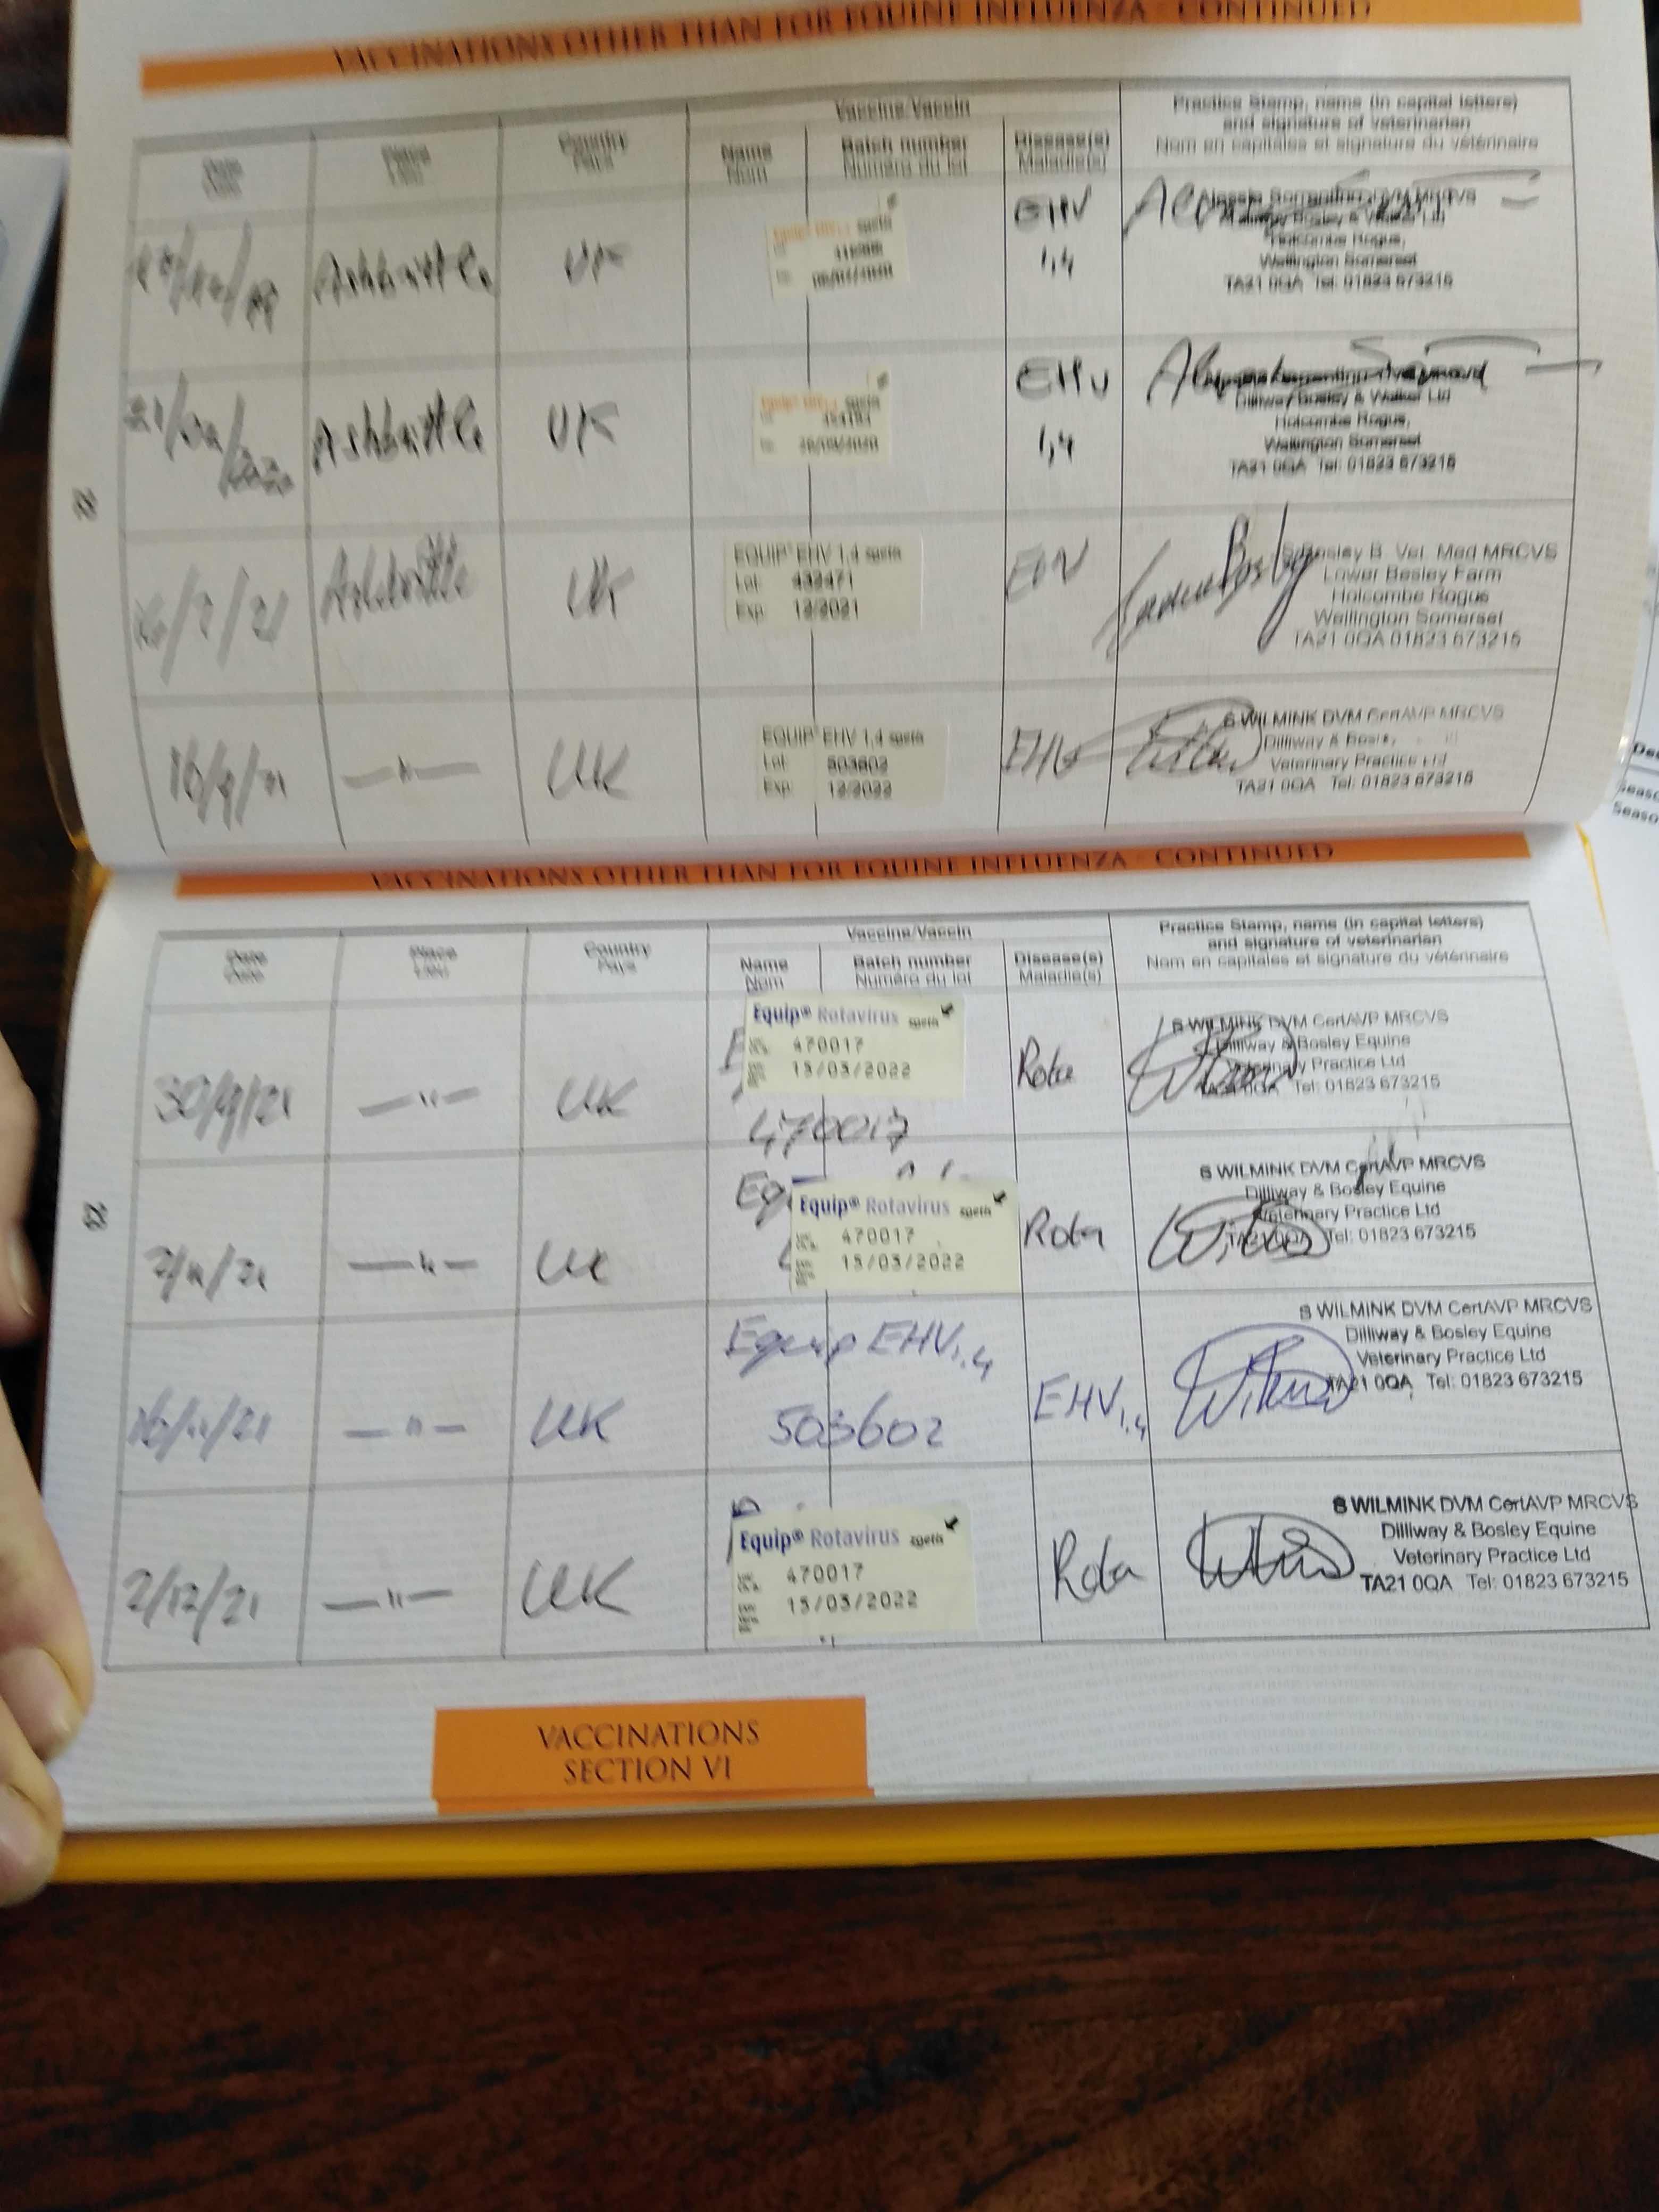 VACCINATIONS OTHER THAN FOR EQUINE INFLUENZA - CONTINUED
Date
Place
Lieu
Country
Pays
Vaccine/Vaccin
Name
Nom
Batch number
Numéro du lot
Disease(s)
Maladie(s)
Practice Stamp, name (in capital letters)
and signature of veterinarian
Nom en capitales et signature du vétérinaire
Ashbrittle
UK
EHV
1,4
Alessia Sorrentino DVM MRCVS
Dilliway Bosley & Walker Ltd
Holcombe Rogus,
Wellington Somerset
TA21 0QA Tel: 01823 673215
Ashbrittle
UK
EHV
1,4
Dilliway Bosley & Walker Ltd
Holcombe Rogus,
Wellington Somerset
TA21 0QA Tel: 01823 673215
22
Ashbrittle
UK
EQUIP® EHV 1,4 zoetis
Lot: 432471
Exp: 12/2021
EHV
S Bosley B. Vet. Med MRCVS
Lower Besley Farm
Holcombe Rogus
Wellington Somerset
TA21 0QA 01823 673215
16/9/21
—"—
UK
EQUIP® EHV 1,4 zoetis
Lot: 503602
Exp: 12/2022
EHV
S WILMINK DVM CertAVP MRCVS
Dilliway &
Veterinary Practice Ltd
TA21 0QA Tel: 01823 673215
VACCINATIONS OTHER THAN FOR EQUINE INFLUENZA - CONTINUED
Date
Place
Lieu
Country
Pays
Vaccine/Vaccin
Name
Nom
Batch number
Numéro du lot
Disease(s)
Maladie(s)
Practice Stamp, name (in capital letters)
and signature of veterinarian
Nom en capitales et signature du vétérinaire
30/9/21
—"—
UK
Equip® Rotavirus zoetis
470017
15/03/2022
470017
Rota
S WILMINK DVM CertAVP MRCVS
Dilliway & Bosley Equine
Veterinary Practice Ltd
TA21 0QA Tel: 01823 673215
23
2/11/21
—"—
UK
Equip® Rotavirus zoetis
470017
15/03/2022
Rota
S WILMINK DVM CertAVP MRCVS
Dilliway & Bosley Equine
Veterinary Practice Ltd
TA21 0QA Tel: 01823 673215
16/11/21
—"—
UK
Equip EHV1,4
503602
EHV1,4
S WILMINK DVM CertAVP MRCVS
Dilliway & Bosley Equine
Veterinary Practice Ltd
TA21 0QA Tel: 01823 673215
2/12/21
—"—
UK
Equip® Rotavirus zoetis
470017
15/03/2022
Rota
S WILMINK DVM CertAVP MRCVS
Dilliway & Bosley Equine
Veterinary Practice Ltd
TA21 0QA Tel: 01823 673215
VACCINATIONS
SECTION VI